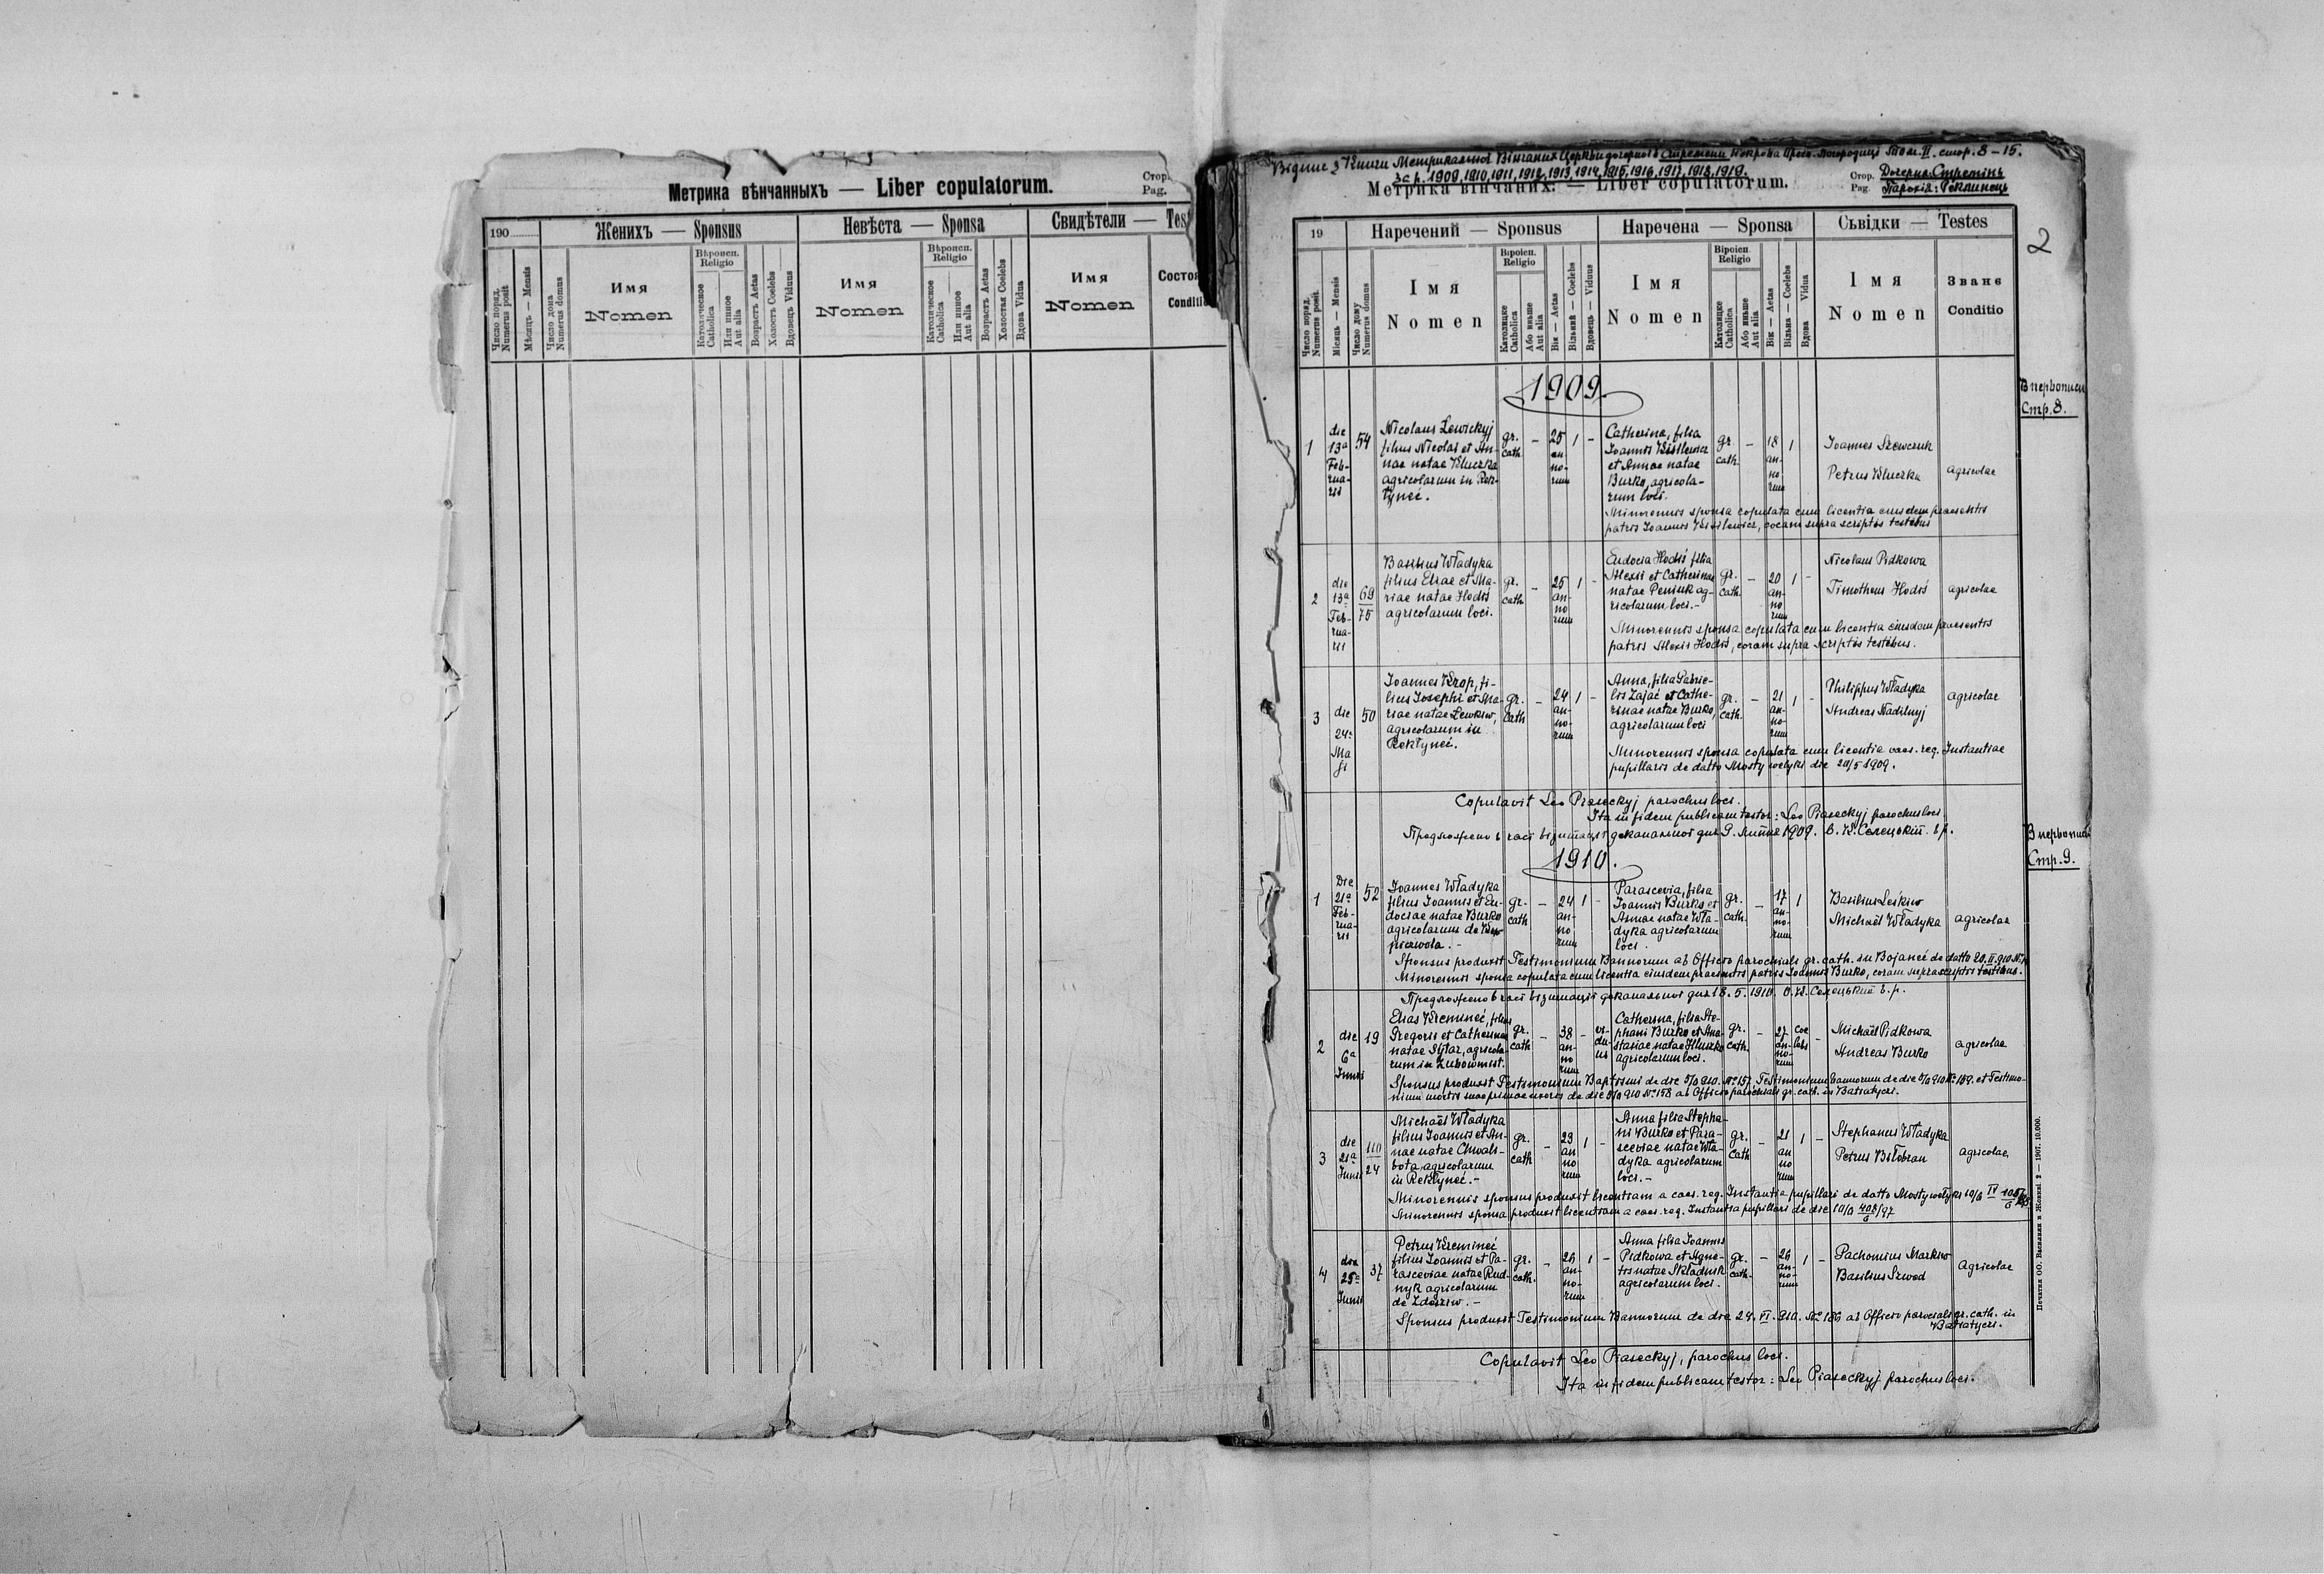 Метрика вѣнчанныхъ — Liber copulatorum.
Стор.
Pag.
190
Женихъ — Sponsus
Невѣста — Sponsa
Свидѣтели — Test
Число поряд.
Numerus posit
Мѣсяцъ — Mensis
Число дома
Numerus domus
Имя
Nomen
Вѣроисп.
Religio
Католическое
Catholica
Или инное
Aut alia
Возрастъ Aetas
Холостъ Coelebs
Вдовецъ Viduus
Имя
Nomen
Вѣроисп.
Religio
Католическое
Catholica
Или инное
Aut alia
Возрастъ Aetas
Холостая Coelebs
Вдова Vidua
Имя
Nomen
Состоя
Conditi
Відпис з Книги Метрикальної Вінчаних Церкви дочерної в Стремени Покрова Пресв. Богородиці Том. II. стор. 8–15.
за р. 1909, 1910, 1911, 1912, 1913, 1914, 1915, 1916, 1917, 1918, 1919.
Метрика вінчаних. — Liber copulatorum.
Стор.
Pag.
Дочерна: Стремінь
Парохія: Реклинець
2
19
Наречений — Sponsus
Наречена — Sponsa
Сьвідки — Testes
Число поряд.
Numerus posit.
Місяць — Mensis
Число дому
Numerus domus
Імя
Nomen
Віроісп.
Religio
Католицке
Catholica
Або иньше
Aut alia
Вік — Aetas
Вільний — Coelebs
Вдовець — Viduus
Імя
Nomen
Віроісп.
Religio
Католицке
Catholica
Або иньше
Aut alia
Вік — Aetas
Вільна — Coelebs
Вдова Vidua
Імя
Nomen
Званє
Conditio
1909.
В первописи
Стр. 8.
1
die
13ª
Feb-
rua-
rii
54
Nicolaus Lewickyj
filius Nicolai et An-
nae natae Kluczka
agricolarum in Rek-
łyneć.
gr.
cath.
–
25
an-
no-
rum
1
–
Catherina, filia
Joannis Wasilewicz
et Annae natae
Burko, agricola-
rum loci.
gr.
cath.
–
18
an-
no-
rum
1
Joannes Szewczuk
Petrus Kluczka
agricolae
Minorennis sponsa copulata cum licentia eiusdem praesentis
patris Joannis Wasilewicz, coram supra scriptis testibus
2
die
13ª
Feb-
rua-
rii
69
75
Basilius Władyka
filius Eliae et Ma-
riae natae Hodiś
agricolarum loci.
gr.
cath.
–
25
an-
no
rum
1
–
Eudocia Hodiś filia
Alexii et Catherinae
natae Peniuk ag-
ricolarum loci.–
gr.
cath.
–
20
an-
no
rum
1
–
Nicolaus Pidkowa
Timotheus Hodiś
agricolae
Minorennis sponsa copulata cum licentia eiusdem praesentis
patris Alexii Hodiś, coram supra scriptis testibus.
3
die
24ª
Ma
ji
50
Joannes Krop, fi-
lius Josephi et Ma-
riae natae Lewkiw,
agricolarum in
Rekłyneć.
gr.
cath
–
24
an-
no-
rum
1
–
Anna, filia Gabrie-
lis Zajać et Cathe-
rinae natae Burko,
agricolarum loci
gr.
cath.
–
21
an-
no-
rum
1
–
Philippus Władyka
Andreas Nadilnyj
agricolae
Minorennis sponsa copulata cum licentia caes. reg. Instantiae
pupillaris de datto Mosty welyki die 20/5 1909.
Copulavit Leo Piaseckyj parochus loci.
Ita in fidem publicam testor: Leo Piaseckyj parochus loci.
Предложено в часі візитації деканальної дня 9. липня 1909. О. К. Селецький в. р.
1910.
В первописи
Стр. 9.
1
Die
21ª
Feb-
rua-
rii
52
Joannes Władyka
filius Joannis et Eu-
dociae natae Burko
agricolarum de
gr.
cath
–
24
an-
no
rum
1
–
Parascevia, filia
Joannis Burko et
Annae natae Wła-
dyka agricolarum
loci.
gr.
cath.
–
17
an-
no-
rum
1
Basilius Leśkiw
Michaël Władyka
agricolae
Sponsus produxit Testimonium Bannorum ab Officio parochiali gr. cath. in Bojaneć de datto 20. II. 910
Minorennis sponsa copulata cum licentia eiusdem praesentis patris Joannis Burko, coram suprascriptis testibus.
Предложено в часі візитації деканальної дня 18. 5. 1910. О. К. Селецький в. р.
2
die
6ª
Junii
19
Elias Kremineć, filius
Gregorii et Catherinae
natae Sytar, agricola-
rum in Lubowmist.
gr.
cath
–
38
an-
no
rum
–
vi-
du-
us
Catherina, filia Ste-
phani Burko et Ana-
stasiae natae Hluszko
agricolarum loci.
gr.
cath.
–
27
an-
no-
rum
coe
lebs
–
Michaël Pidkowa
Andreas Burko
agricolae
Sponsus produxit Testimonium Baptismi de die 5/6 910. Nº 157, Testimonium Bannorum de die 5/6 910 Nº 159. et Testimo-
nium mortis suae primae uxoris de die 5/6 910 Nº 158 ab Officio parochiali gr. cath. in Batiatyczi.
3
die
21ª
Junii
110
24
Michaël Władyka
filius Joannis et An-
nae natae Chwali-
bota, agricolarum
in Rekłyneć.–
gr.
cath
–
23
an
no
rum
1
–
Anna filia Stepha-
ni Burko et Para-
sceviae natae Wła-
dyka agricolarum
loci.–
gr.
cath
–
21
an
no
rum
1
–
Stephanus Władyka
Petrus Biłobran
agricolae,
Minorennis sponsus produxit licentiam a caes. reg. Instantia pupillari de datto Mosty wełyki
Minorennis sponsa produxit licentiam a caes. reg. Instantia pupillari de die
4
die
25ª
Junii
37
Petrus Kremineć
filius Joannis et Pa-
rasceviae natae Rud-
nyk agricolarum
de Zdeżiw.–
gr.
cath.
–
26
an-
no-
rum
1
–
Anna filia Joannis
Pidkowa et Agne-
tis natae Składnik
agricolarum loci.
gr.
cath.
–
26
an-
no-
rum
1
–
Pachomius Markiw
Basilius Szwed
Agricolae
Sponsus produxit Testimonium Bannorum de die 24. VI. 910. Nº 186 ab Officio parochiali gr. cath. in
Batiatyczi.
Copulavit Leo Piaseckyj, parochus loci.
Ita in fidem publicam testor: Leo Piaseckyj parochus loci.
Печатня ОО. Василиян в Жовкві 2 — 1907. 10.000.